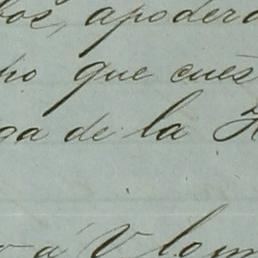 bos, apodera
ho que cues
ga de la H
a Vlom